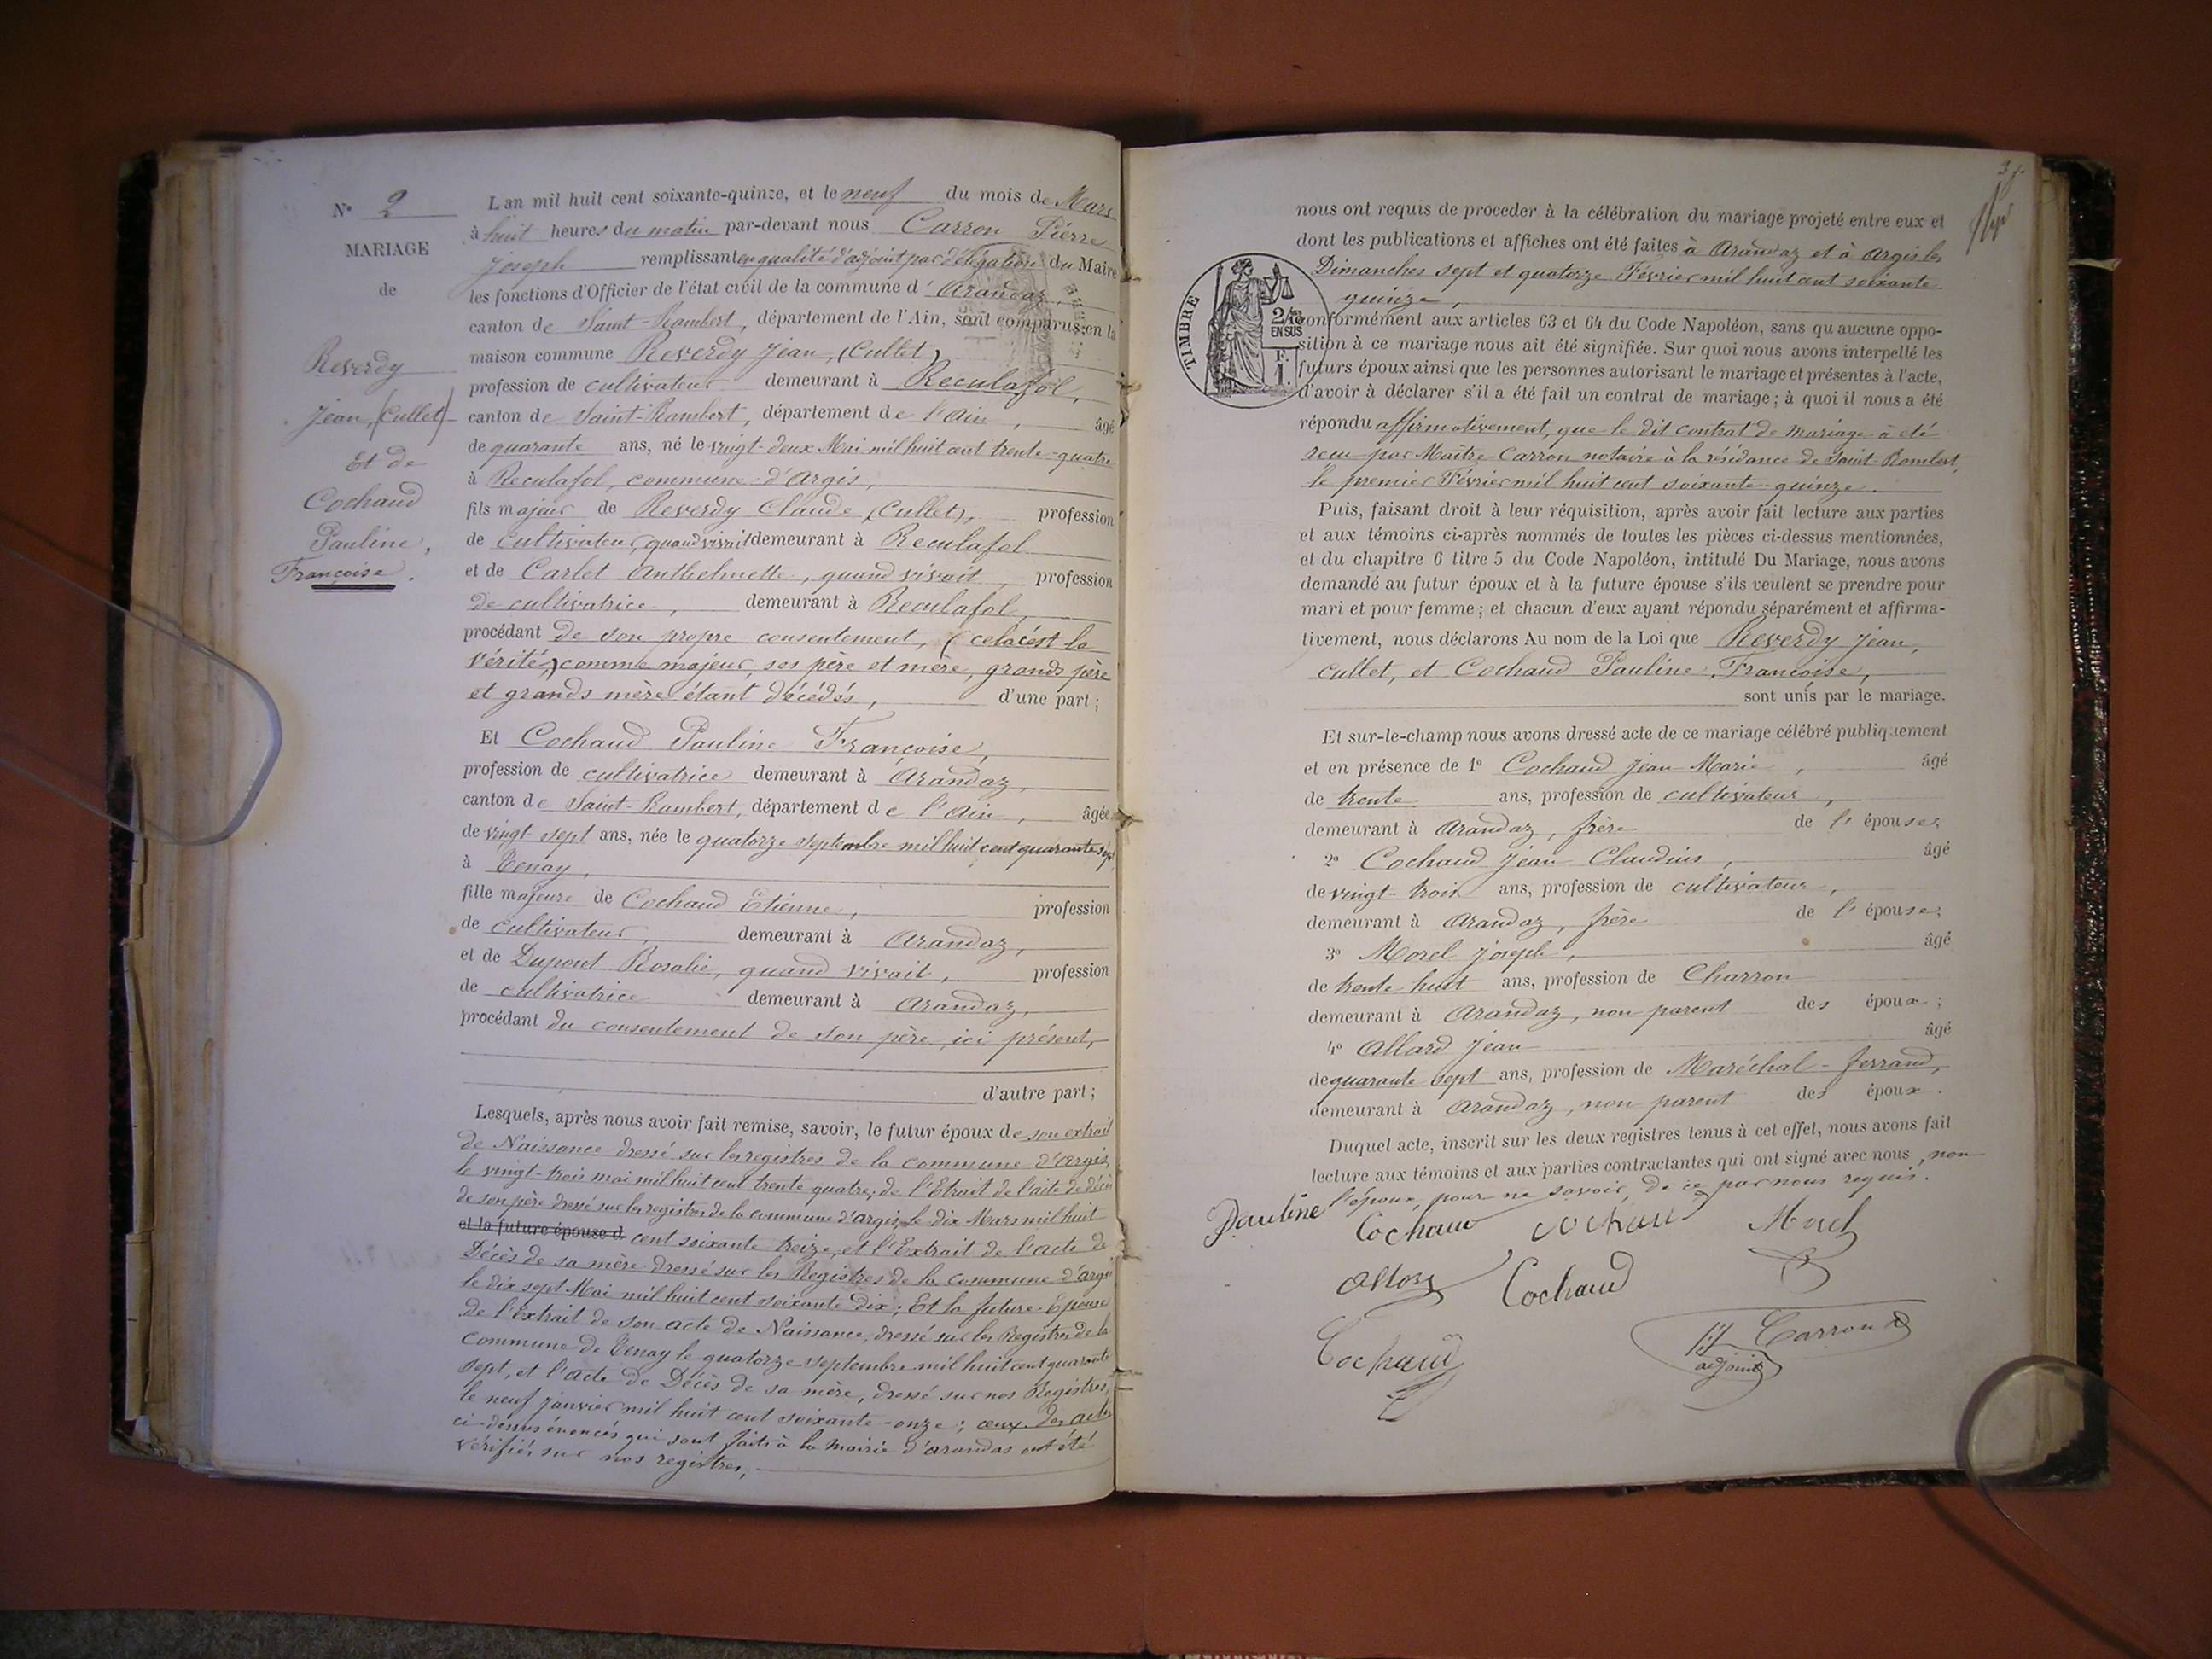 N° 2
MARIAGE
de
Reverdy
Jean, (Cullet)
Et de
Cochaud
Pauline,
Françoise.
L'an mil huit cent soixante-quinze, et le neuf du mois de Mars
à huit heures du matin par-devant nous Carron Pierre
Joseph remplissant en qualité d'adjoint par délégation du Maire
les fonctions d'Officier de l'état civil de la commune d'Arandaz,
canton de Saint-Rambert, département de l'Ain, sont comparus en la
maison commune Reverdy Jean, (Cullet)
profession de cultivateur demeurant à Reculafol,
canton de Saint-Rambert, département de l'Ain, âgé
de quarante ans, né le vingt-deux Mai mil huit cent trente-quatre
à Reculafol, commune d'Argis,
fils majeur de Reverdy Claude, (Cullet), profession
de cultivateur, quand vivait demeurant à Reculafol
et de Carlet Anthelmette, quand vivait, profession
de cultivatrice, demeurant à Reculafol,
procédant de son propre consentement, (cela c'est la
vérité,) comme majeur, ses père et mère, grands père
et grands mère étant décédés, d'une part;
Et Cochaud Pauline Françoise,
profession de cultivatrice demeurant à Arandaz,
canton de Saint-Rambert, département de l'Ain, âgée
de vingt-sept ans, née le quatorze septembre mil huit cent quarante sept
à Tenay,
fille majeure de Cochaud Etienne, profession
de cultivateur, demeurant à Arandaz,
et de Dupont Rosalie, quand vivait, profession
de cultivatrice demeurant à Arandaz,
procédant du consentement de son père, ici présent,
d'autre part;
Lesquels, après nous avoir fait remise, savoir, le futur époux de son extrait
de Naissance dressé sur les registres de la commune d'Argis,
le vingt-trois mai mil huit cent trente quatre, de l'Etrait de l'acte de décès
de son père dressé sur les registres de la commune d'Argis, le dix Mars mil huit
et la future épouse d cent soixante treize, et l'Extrait de l'acte de
Décès de sa mère dressé sur les Registres de la commune d'Argis
le dix sept Mai mil huit cent soixante dix; Et la future Epouse
de l'Extrait de son acte de Naissance, dressé sur les Registres de la
commune de Tenay le quatorze septembre mil huit cent quarante
sept, et l'acte de Décès de sa mère, dressé sur nos Registres,
le neuf janvier mil huit cent soixante-onze; ceux des actes
ci-dessus énoncés qui sont faits à la mairie d'Arandas ont été
vérifiés sur nos registres,
nous ont requis de proceder à la célébration du mariage projeté entre eux et
dont les publications et affiches ont été faites à Arandaz et à Argis les
Dimanches sept et quatorze Février mil huit cent soixante
quinze,
TIMBRE
2/10
EN SUS
F.
1.
conformément aux articles 63 et 64 du Code Napoléon, sans qu'aucune oppo-
sition à ce mariage nous ait été signifiée. Sur quoi nous avons interpellé les
futurs époux ainsi que les personnes autorisant le mariage et présentes à l'acte,
d'avoir à déclarer s'il a été fait un contrat de mariage; à quoi il nous a été
répondu affirmativement, que le dit contrat de mariage a été
recu par Maître Carron notaire à la résidance de Saint-Rambert,
le premier Février mil huit cent soixante-quinze.
Puis, faisant droit à leur réquisition, après avoir fait lecture aux parties
et aux témoins ci-après nommés de toutes les pièces ci-dessus mentionnées,
et du chapitre 6 titre 5 du Code Napoléon, intitulé Du Mariage, nous avons
demandé au futur époux et à la future épouse s'ils veulent se prendre pour
mari et pour femme; et chacun d'eux ayant répondu séparément et affirma-
tivement, nous déclarons Au nom de la Loi que Reverdy Jean,
Cullet, et Cochaud Pauline, Françoise,
sont unis par le mariage.
Et sur-le-champ nous avons dressé acte de ce mariage célébré publiquement
et en présence de 1° Cochaud Jean-Marie, âgé
de trente ans, profession de cultivateur,
demeurant à Arandaz, frère de l'épouse;
2° Cochaud Jean Claudius, âgé
de vingt-trois ans, profession de cultivateur,
demeurant à Arandaz, frère de l'épouse;
3° Morel Joseph, âgé
de trente huit ans, profession de Charron
demeurant à Arandaz, non parent des époux;
4° Allard Jean âgé
de quarante sept ans, profession de Maréchal-ferrand,
demeurant à Arandaz, non parent des époux.
Duquel acte, inscrit sur les deux registres tenus à cet effet, nous avons fait
lecture aux témoins et aux parties contractantes qui ont signé avec nous, non
l'époux, pour ne savoir, de ce par nous requis.
Pauline Cochaud Cochaud Morel
Cochaud
Cochaud
Carron
adjoint